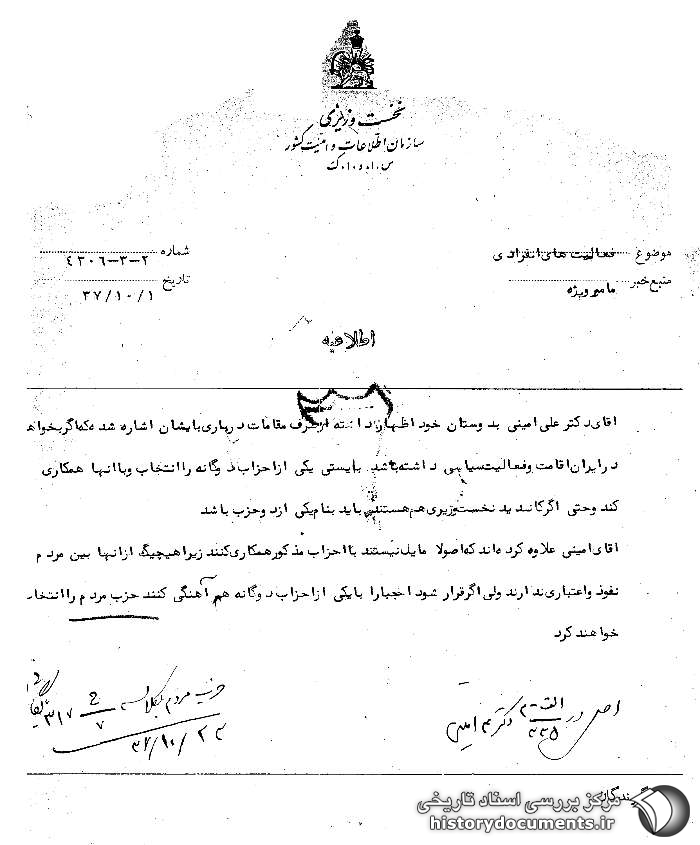 نخست وزیری
سازمان اطلاعات و امنیت کشور
س.ا.و.ا.ک
موضوع فعالیت های انفرادی
شماره ۲-۳-۴۳۰۶
منبع خبر مامور ویژه
تاریخ ۳۷/۱۰/۱
اطلاعیه
اقای دکتر علی امینی بدوستان خود اظهار داشته از طرف مقامات درباری بایشان اشاره شده که اگر بخواهد
در ایران اقامت و فعالیت سیاسی داشته باشد بایستی یکی از احزاب دوگانه را انتخاب و با انها همکاری
کند وحتی اگر کاندید نخست وزیری هم هستند باید بنام یکی از دو حزب باشد
اقای امینی علاوه کرده اند که اصولا مایل نیستند با احزاب مذکور همکاری کنند زیرا هیچیک از انها بین مردم
نفوذ و اعتباری ندارند ولی اگر قرار شود اجبارا با یکی از احزاب دوگانه هم آهنگی کنند حزب مردم را انتخاب
خواهند کرد
اصل در دکتر امینی
حزب مردم ۳۱۷
۳۷/۱۰/۲۳
مرکز بررسی اسناد تاریخی
historydocuments.ir